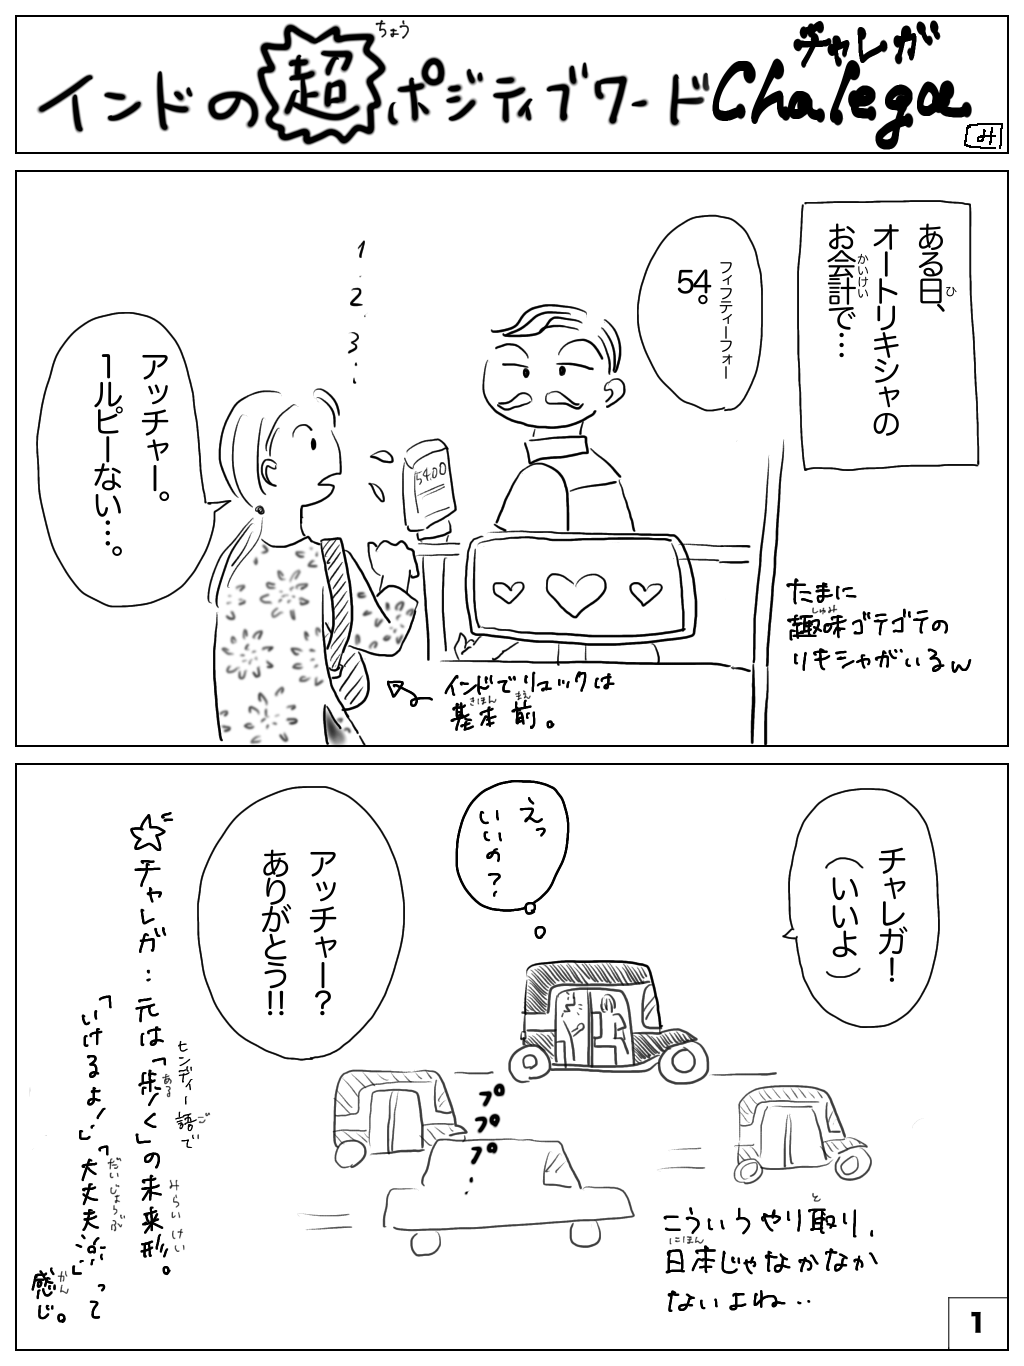 ちょう
インドの超ポジティブワード
チャレガ
Chalega
み
ある日、
ひ
オートリキシャの
お会計で…
かいけい
フィフティーフォー
54。
1
2.
3...
54.00
アッチャー。
1ルピーない…。
たまに
趣味ゴテゴテの
しゅみ
リキシャがいるw
インドでリュックは
基本 前。
きほん
まえ
チャレガ!
(いいよ)
えっ
いいの?
アッチャー?
ありがとう!!
プ
プ
プ
こういうやり取り、
と
日本じゃなかなか
にほん
ないよね..
☆チャレガ:元は「歩く」の未来形。
ヒンディー語で
ご
ある
みらいけい
「いけるよ!」「大丈夫!」って
だいじょうぶ
感じ。
かん
1